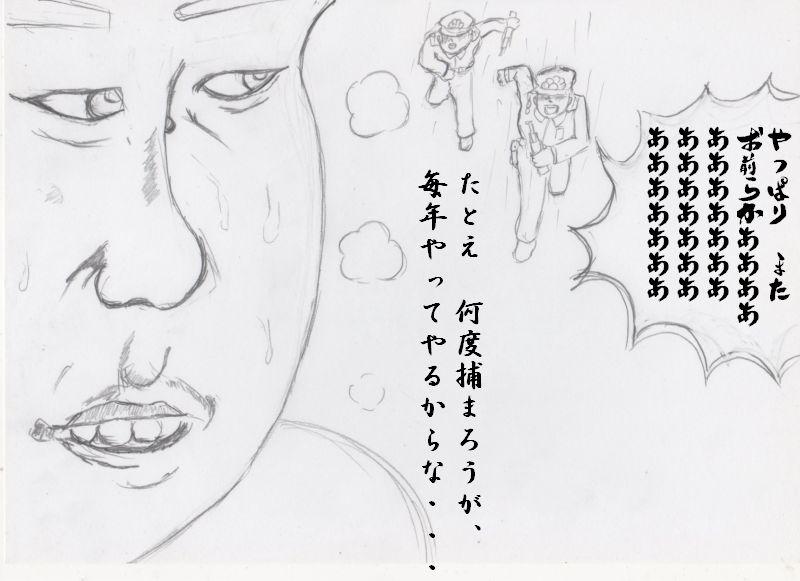 やっぱり　また
お前らかああああ
あああああああ
あああああああ
あああああああ
たとえ　何度捕まろうが、
毎年やってやるからな・・・